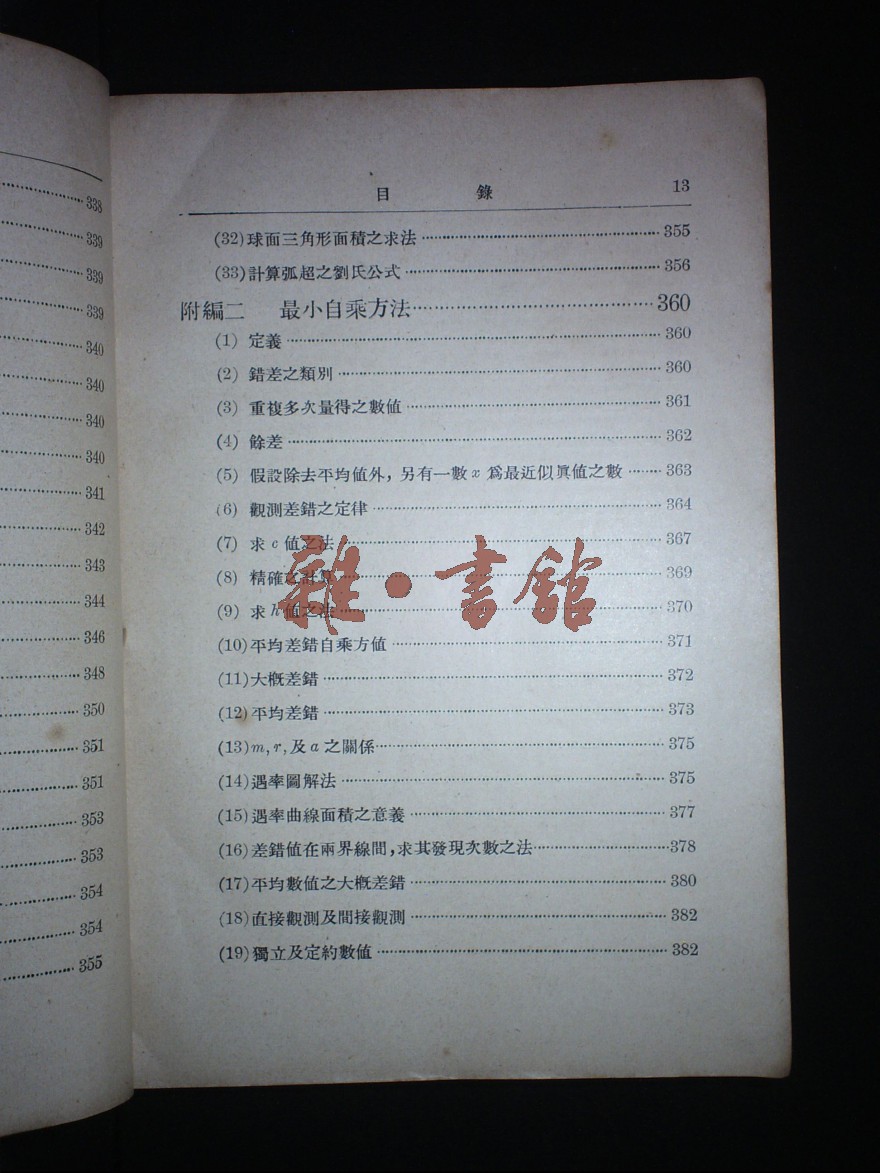 338
339
339
339
340
340
340
340
341
342
343
344
346
348
350
351
351
353
353
354
354
355
目 錄 13
(32)球面三角形面積之求法 355
(33)計算弧超之劉氏公式 356
附編二 最小自乘方法 360
(1) 定義 360
(2) 錯差之類別 360
(3) 重複多次量得之數値 361
(4) 餘差 362
(5) 假設除去平均値外,另有一數 x 爲最近似眞値之數 363
(6) 觀測差錯之定律 364
(7) 求 c 値之法 367
(8) 精確之計算 369
(9) 求 h 値之法 370
(10)平均差錯自乘方値 371
(11)大槪差錯 372
(12)平均差錯 373
(13)m, r, 及 a 之關係 375
(14)遇率圖解法 375
(15)遇率曲線面積之意義 377
(16)差錯値在兩界線間,求其發現次數之法 378
(17)平均數値之大槪差錯 380
(18)直接觀測及間接觀測 382
(19)獨立及定約數値 382
雜·書館